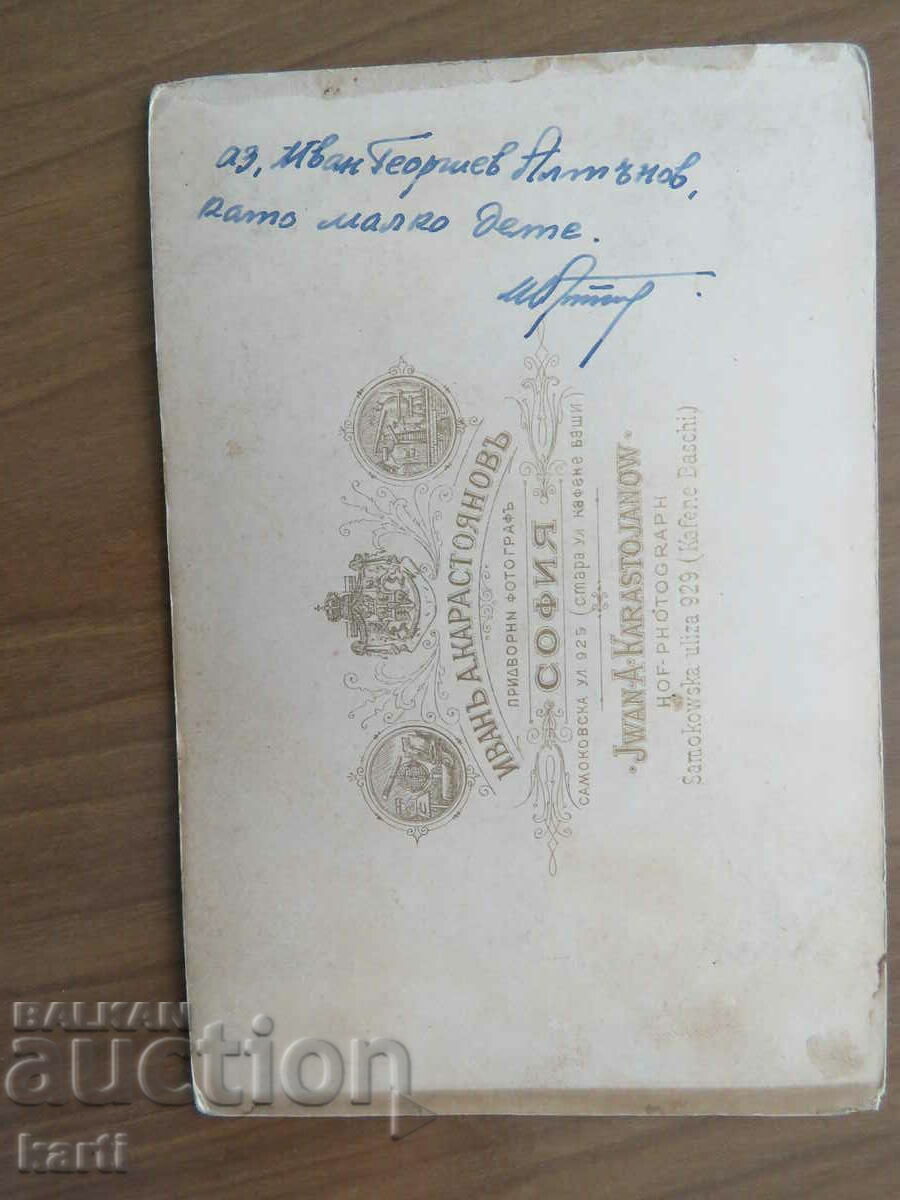 аз, Иван Георгиев Алтънов,
като малко дете.
ИВАНЪ А. КАРАСТОЯНОВЪ
ПРИДВОРНИ ФОТОГРАФЪ
СОФИЯ
САМОКОВСКА УЛ 925 (стара ул кафене баши)
JWAN·A·KARASTOJANOW·
HOF-PHOTOGRAPH
Samokowska uliza 929 (Kafene Baschi)
BALKAN
auction
karti